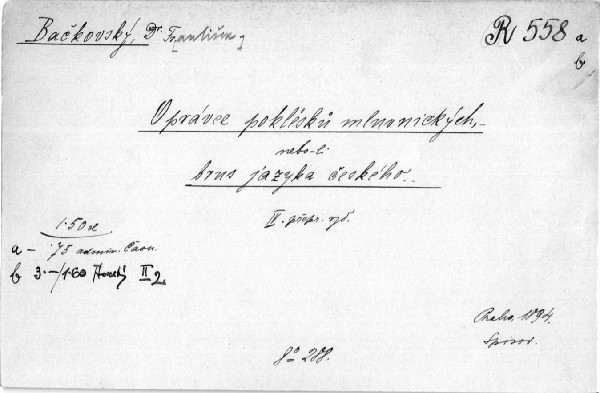 Bačkovský, Dr. František
R 558 a
b
Oprávce poklésků mluvnických,
nebo-li
brus jazyka českého..
IV. přepr. vyd.
1·50 zl
a — ·75 admin. Čas.
b 3.—/1·60 II 2
Praha, 1894.
Spisov.
8° 288.